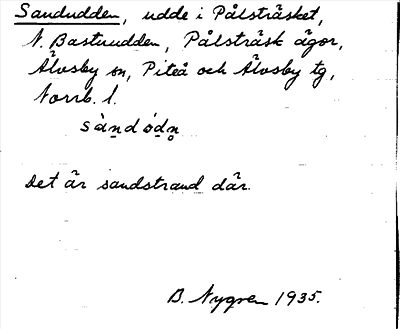 Sandudden, udde i Pålsträsket,
N. Bastuudden, Pålsträsk ägor,
Älvsby sn, Piteå och Älvsby tg,
Norrb. l.
sàndódn̥
Det är sandstrand där.
B. Nygren 1935.